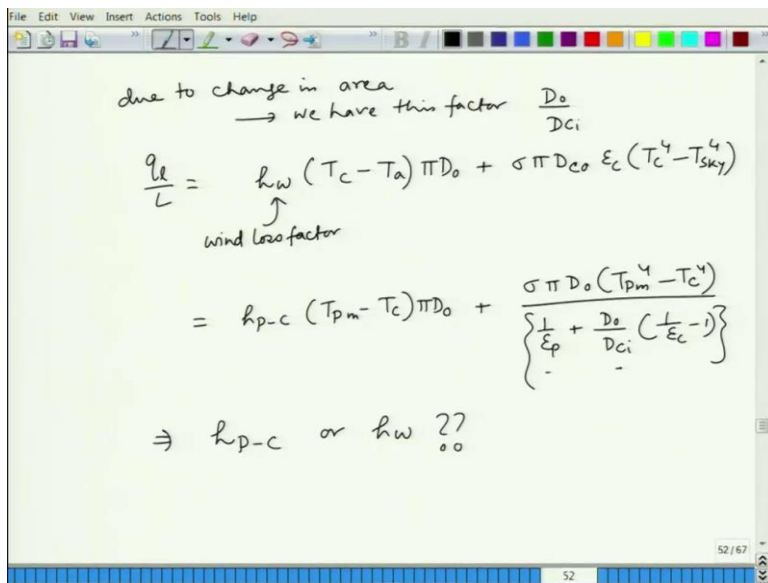 File Edit View Insert Actions Tools Help
due to change in area
→ we have this factor Do/Dci
ql/L = hw (Tc - Ta) πDo + σ π Dco εc (Tc^4 - Tsky^4)
wind loss factor
= hp-c (Tpm - Tc) πDo + σ π Do (Tpm^4 - Tc^4) / {1/εp + Do/Dci (1/εc - 1)}
⇒ hp-c or hw ??
52/67
52